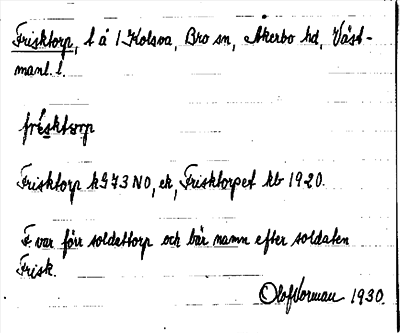 Frisktorp, l å 1 Kolsva, Bro sn, Åkerbo hd, Väst-
manl. l.
frisktorp
Frisktorp k G73 NO, ek, Frisktorpet kb 1920.
F. var förr soldattorp och bär namn efter soldaten
Frisk.
Olof Norman 1930.